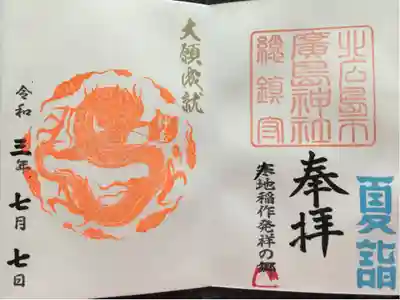 夏詣
奉拝
寒地稲作発祥の郷
北広島市
廣島神社
総鎮守
大願成就
令和三年七月七日